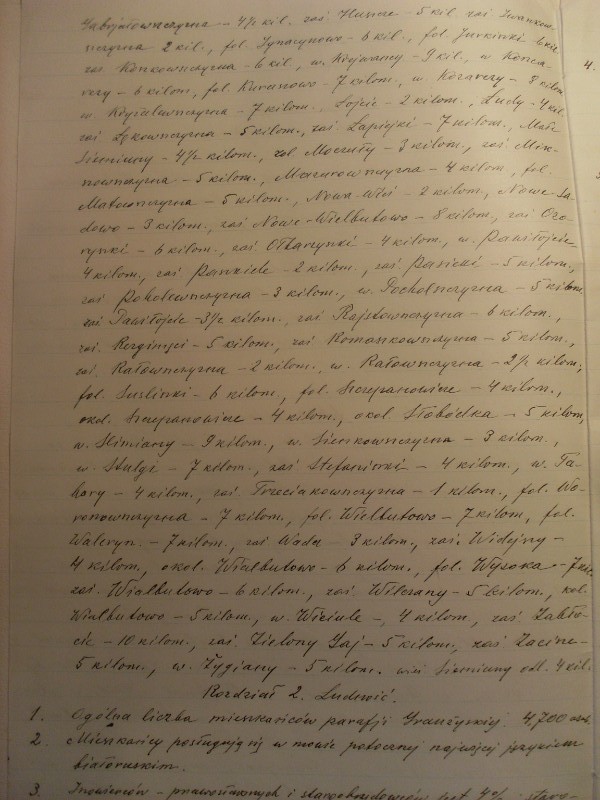 Gabrjałowszczyzna – 4½ kil. zaś Huszcze – 5 kil. zaś Iwaszkow-
szczyzna 2 kil., fol. Ignacynowo – 6 kil., fol. Jurkinki – 6 kil.
zaś Konkowszczyzna – 6 kil., w. – 9 kil., w
– 6 kilom., fol. Kuranowo – 7 kilom., w. – 8 kilom
w. – 7 kilom., Łojcie – 2 kilom., Ludy – 4 kil.
zaś Łękowszczyzna – 5 kilom., zaś Łapiejki – 7 kilom., Małe
Siemiuny – 4½ kilom., fol. Moczuły – 3 kilom., zaś Min-
nowszczyzna – 5 kilom., Mazurowszczyzna – 4 kilom., fol.
Matowszczyzna – 5 kilom., Nowa-Wieś – 2 kilom., Nowe-Sa-
dowo – 3 kilom., zaś Nowe-Wielbutowo – 8 kilom., zaś Ozo-
rynki – 6 kilom., zaś – 4 kilom., w. Pawiłojcie
4 kilom., zaś – 2 kilom., zaś Panicki – 5 kilom.,
zaś – 3 kilom., w. – 5 kilom
zaś Pawiłojcie – 3½ kilom., zaś Rajstowszczyzna – 6 kilom.,
zaś. – 5 kilom., zaś Romankowszczyzna – 5 kilom.,
zaś. Ratowszczyzna – 2 kilom., w. Ratowszczyzna – 2½ kilom.,
fol. Suslinki – 6 kilom., fol. Szczepanowicze – 4 kilom.,
okol. Szczepanowicze – 4 kilom., okol Słobódka – 5 kilom,
w. Slimiany – 9 kilom., w. Sienkowszczyzna – 3 kilom.,
w. Stulgi – 7 kilom., zaś Stefaninki – 4 kilom., w. Ta-
kary – 4 kilom., zaś. Trzeciakowszczyzna – 1 kilom., fol. Wo-
ronowszczyzna – 7 kilom., fol. Wielbutowo – 7 kilom, fol.
Waleryn. – 7 kilom., zaś Wada – 3 kilom., zaś. Widejny –
4 kilom., okol. Wialbutowo – 6 kilom., fol. Wysoka – 7 kil.
zaś. Wialbutowo – 6 kilom., zaś. – 5 kilom., kol.
Wialbutowo – 5 kilom., w. Wiciule –, 4 kilom., zaś Zabło-
cie – 10 kilom., zaś. Zielony Gaj – 5 kilom., zaś Zacisze –
5 kilom., w. Żygiany – 5 kilom. wieś Siemiuny odl. 4 kil.
Rozdział 2. Ludność.
1. Ogólna liczba mieszkańców parafji Graużyskiej 4,700 osób
2. Mieszkańcy posługują się w mowie potocznej najwięcej językiem
białoruskim.
3. Inowierców – prawosławnych i staroobrzędowców jest 4% ; staro-
4.